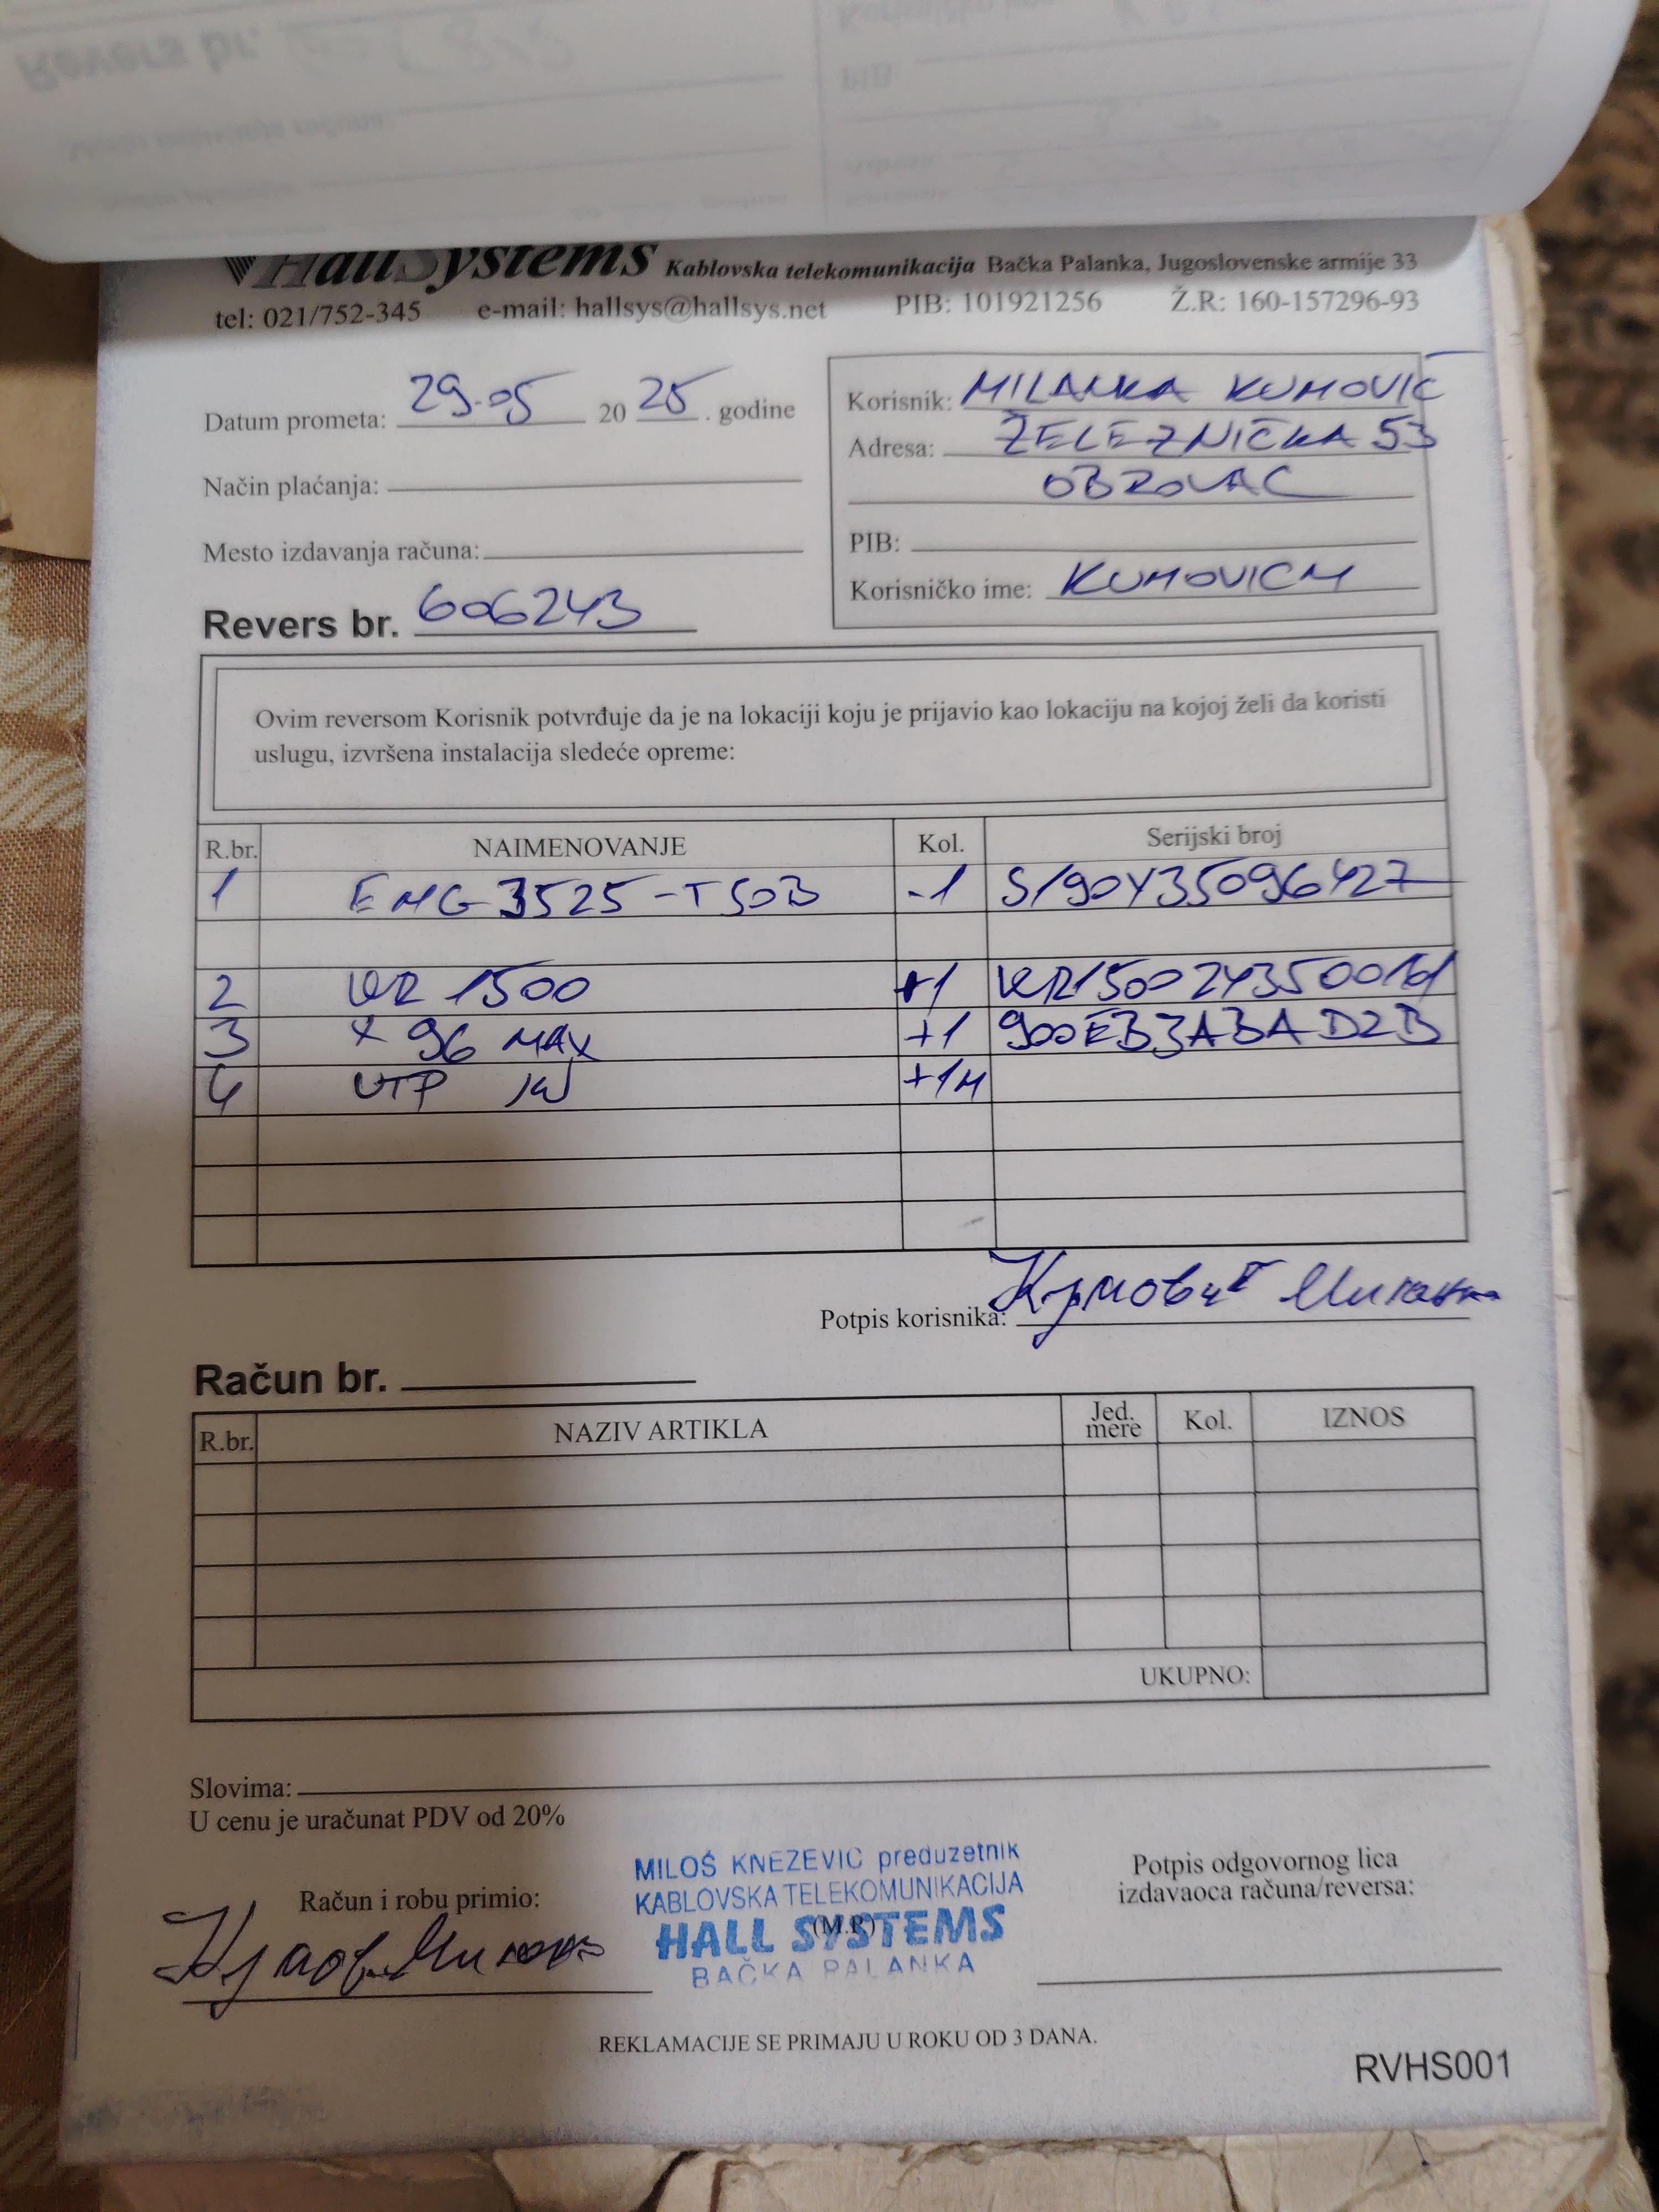 HallSystems Kablovska telekomunikacija Bačka Palanka, Jugoslovenske armije 33
tel: 021/752-345 e-mail: hallsys@hallsys.net PIB: 101921256 Ž.R: 160-157296-93
Datum prometa: 29.05 20 25 . godine
Način plaćanja:
Mesto izdavanja računa:
Revers br. 606243
Korisnik: MILANKA KUMOVIĆ
Adresa: ŽELEZNIČKA 53
OBROVAC
PIB:
Korisničko ime: KUMOVICM
Ovim reversom Korisnik potvrđuje da je na lokaciji koju je prijavio kao lokaciju na kojoj želi da koristi
uslugu, izvršena instalacija sledeće opreme:
R.br. NAIMENOVANJE Kol. Serijski broj
1 EMG 3525-T50B -1 S190Y35096427
2 VR 1500 +1
3 X 96 MAX +1 900EB3ABAD2B
4 UTP +1M
Potpis korisnika: Кумовић Миланка
Račun br.
R.br. NAZIV ARTIKLA Jed. mere Kol. IZNOS
UKUPNO:
Slovima:
U cenu je uračunat PDV od 20%
Račun i robu primio:
MILOŠ KNEZEVIC preduzetnik
KABLOVSKA TELEKOMUNIKACIJA
(M.P.)
HALL SYSTEMS
BAČKA PALANKA
Potpis odgovornog lica
izdavaoca računa/reversa:
REKLAMACIJE SE PRIMAJU U ROKU OD 3 DANA.
RVHS001